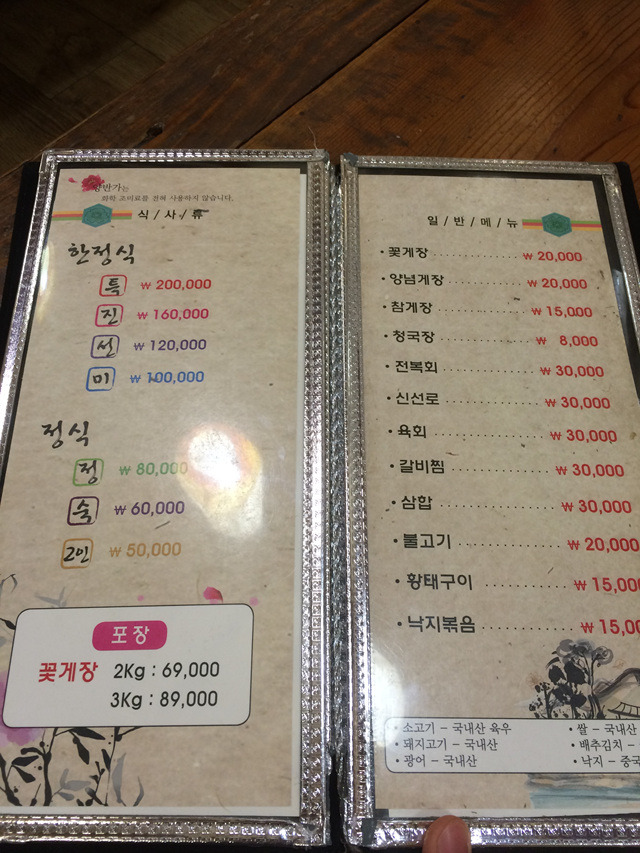 양반가는
화학 조미료를 전혀 사용하지 않습니다.
식/사/류
한정식
특 ₩ 200,000
진 ₩ 160,000
선 ₩ 120,000
미 ₩ 100,000
정식
정 ₩ 80,000
숙 ₩ 60,000
2인 ₩ 50,000
포장
꽃게장 2Kg : 69,000
3Kg : 89,000
일/반/메/뉴
· 꽃게장 ₩ 20,000
· 양념게장 ₩ 20,000
· 참게장 ₩ 15,000
· 청국장 ₩ 8,000
· 전복회 ₩ 30,000
· 신선로 ₩ 30,000
· 육회 ₩ 30,000
· 갈비찜 ₩ 30,000
· 삼합 ₩ 30,000
· 불고기 ₩ 20,000
· 황태구이 ₩ 15,000
· 낙지볶음 ₩ 15,00
· 소고기 – 국내산 육우 · 쌀 – 국내산
· 돼지고기 – 국내산 · 배추김치 –
· 광어 – 국내산 · 낙지 – 중국